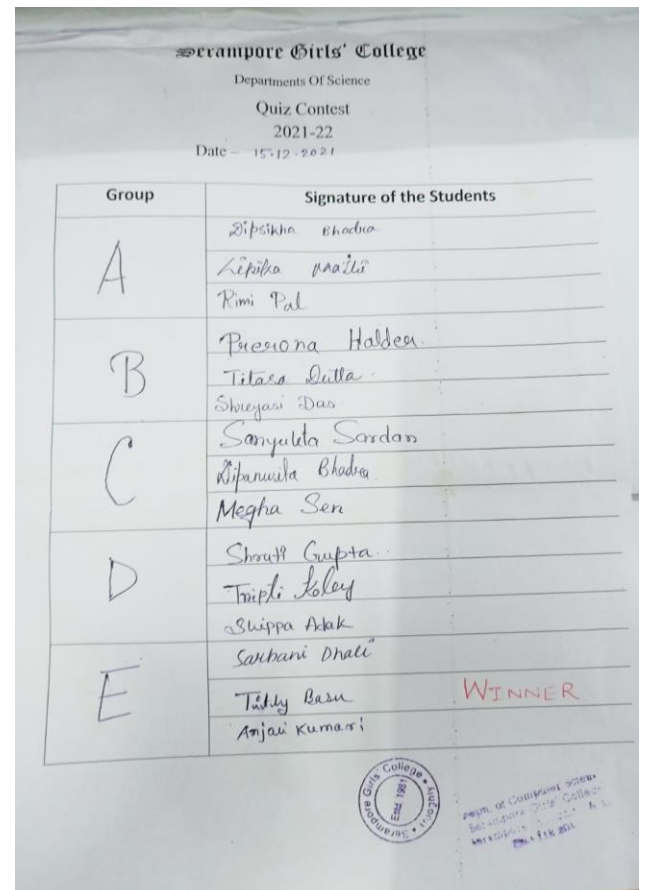 Serampore Girls' College
Departments Of Science
Quiz Contest
2021-22
Date – 15.12.2021
Group Signature of the Students
A
Dipsikha Bhadra
Lipika Maiti
Rimi Pal
B
Prerona Halder.
Titasa Dutta
Shreyasi Das
C
Sanyukta Sardar
Dipanwita Bhadra
Megha Sen
D
Shruti Gupta
Tripti Koley
Shippa Adak
E
Sarbani Dhali
Basu WINNER
Anjali Kumari
Serampore Girls' College
Estd. 1981
Deptt. of Computer Scien
Serampore Girls' College